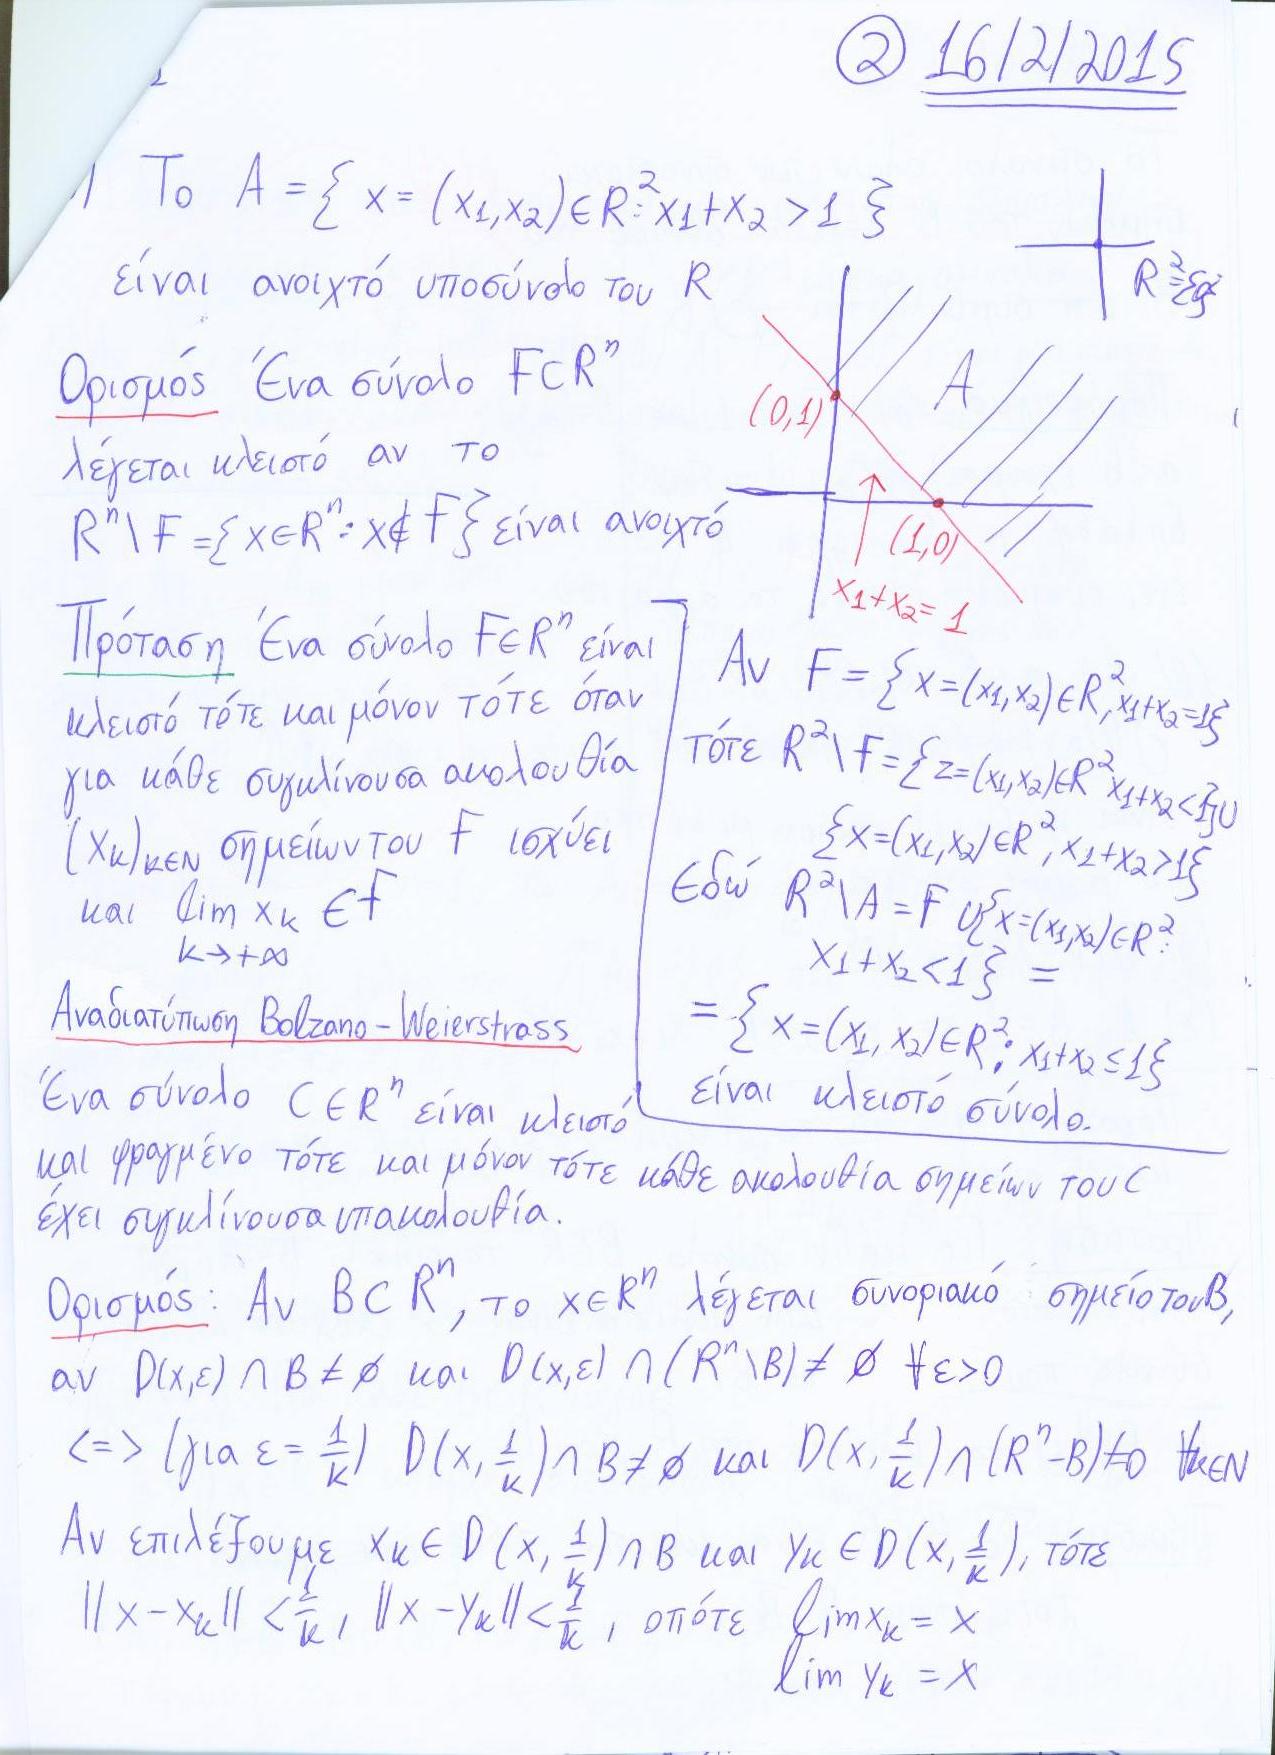 ② 16/2/2015
Το A = { x = (x₁,x₂) ∈ R²: x₁+x₂ > 1 }
είναι ανοιχτό υποσύνολο του R
R²
Ορισμός Ένα σύνολο F⊂Rⁿ
λέγεται κλειστό αν το
Rⁿ\F = { x∈Rⁿ: x∉F } είναι ανοιχτό
A
(0,1)
(1,0)
x₁+x₂ = 1
Πρόταση Ένα σύνολο F∈Rⁿ είναι
κλειστό τότε και μόνον τότε όταν
για κάθε συγκλίνουσα ακολουθία
(xₖ)ₖ∈N σημείων του F ισχύει
και lim xₖ ∈ F
k→+∞
Αν F = { x=(x₁,x₂)∈R², x₁+x₂=1 }
τότε R²\F = { z=(x₁,x₂)∈R² x₁+x₂<1 } ∪
{ x=(x₁,x₂)∈R², x₁+x₂>1 }
Εδώ R²\A = F ∪ { x=(x₁,x₂)∈R²:
x₁+x₂<1 } =
= { x=(x₁,x₂)∈R²: x₁+x₂≤1 }
είναι κλειστό σύνολο.
Αναδιατύπωση Bolzano-Weierstrass
Ένα σύνολο C∈Rⁿ είναι κλειστό
και φραγμένο τότε και μόνον τότε κάθε ακολουθία σημείων του C
έχει συγκλίνουσα υπακολουθία.
Ορισμός: Αν B⊂Rⁿ, το x∈Rⁿ λέγεται συνοριακό σημείο του B,
αν D(x,ε) ∩ B ≠ ∅ και D(x,ε) ∩ (Rⁿ\B) ≠ ∅ ∀ε>0
<=> (για ε = 1/k) D(x, 1/k) ∩ B ≠ ∅ και D(x, 1/k) ∩ (Rⁿ-B) ≠ 0 ∀k∈N
Αν επιλέξουμε xₖ ∈ D(x, 1/k) ∩ B και yₖ ∈ D(x, 1/k), τότε
||x-xₖ|| < 1/k, ||x-yₖ|| < 1/k, οπότε lim xₖ = x
lim yₖ = x